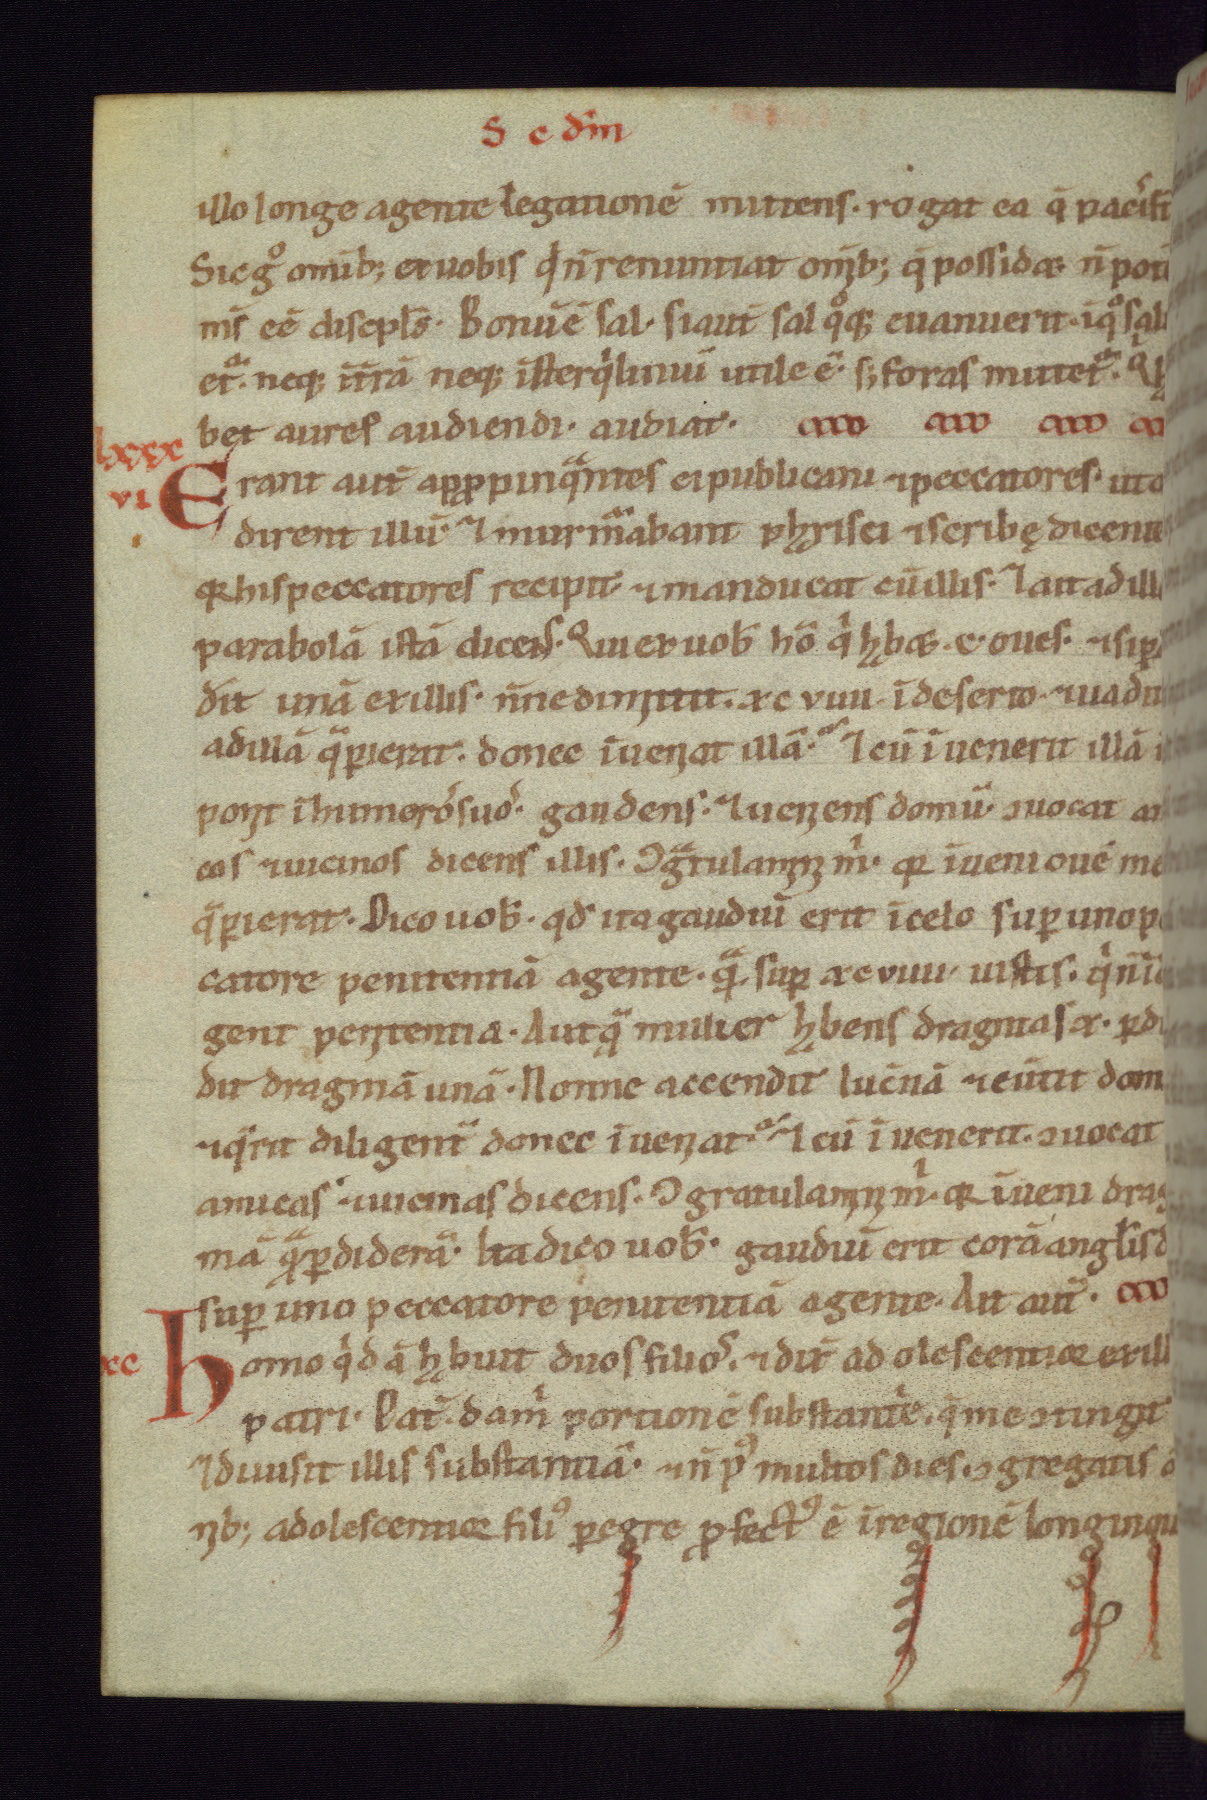 S c dm̄
illo longe agente legationē mittens. rogat ea q̄ pacis
Sic gͦ omīb; et uobis q̇ n̄ renuntiat om̄ib; q̄ possidet n̄ pot
m̄s eē discipl̄s. Bonū ē sal. si aut̄ sal qͦq; euanuerit. ī qͦ
etͬ. neq; ī t̄rā neq; ī sterq̇liniū utile ē. s; foras mittetͬ.
bet aures audiendi. audiat.
lxxx
vi
Erant aut̄ app̱pinqᵃntes ei publicani ⁊ peccatores. ut
dirent illū. ⁊ murmᵃabant pharisei ⁊ scribę dicen
qꝛ his peccatores recipit. ⁊ manducat cū illis. ⁊ ait ad ill
parabolā istā dicens. Qui ex uob̄ hō q̇ habet .c. oues. ⁊ si ꝑ
dit unā ex illis. n̄ne dimittit .xc viiii. ī deserto. ⁊ uadit
ad illā q̄ ꝑierat. donec īueniat illā. ⁊ cū īuenerit illā
ponit ī humeros suos. gaudens. ⁊ ueniens domū. ꝯuocat
cos ⁊ uicinos dicens illis. ꝯgᵃtulamini m̍. qꝛ īueni ouē
q̄ ꝑierat. Dico uob̄. qd̄ ita gaudiū erit ī celo suꝑ uno
catore penitentiā agente. qᵃ suꝑ xc viiii iustis. q̇ n̄
gent penitentia. Aut qᵃ mulier habens dragmas x. ꝑd
dit dragmā unā. Nonne accendit lucn̄ā ⁊ eūtit dom
⁊ q̄rit diligent̄ donec īueniat. ⁊ cū īuenerit. ꝯuocat
amicas ⁊ uicinas dicens. ꝯgratulamini m̍. qꝛ īueni drag
mā qᵃ ꝑdiderā. Ita dico uob̄. gaudiū erit corā angl̄is d
suꝑ uno peccatore penitentiā agente. Ait aut̄.
xc
Homo q̇dā habuit duos filios. ⁊ dix̄ adolescentior ex ill
patri. Pat̄. da m̍ portionē substantię. q̄ me ꝯtingit
⁊ diuisit illis substantiā. ⁊ n̄ pꝰ multos dies. ꝯgregatis
nib; adolescentior filiꝰ ꝑegre ꝓfectꝰ ē ī regionē longinqu